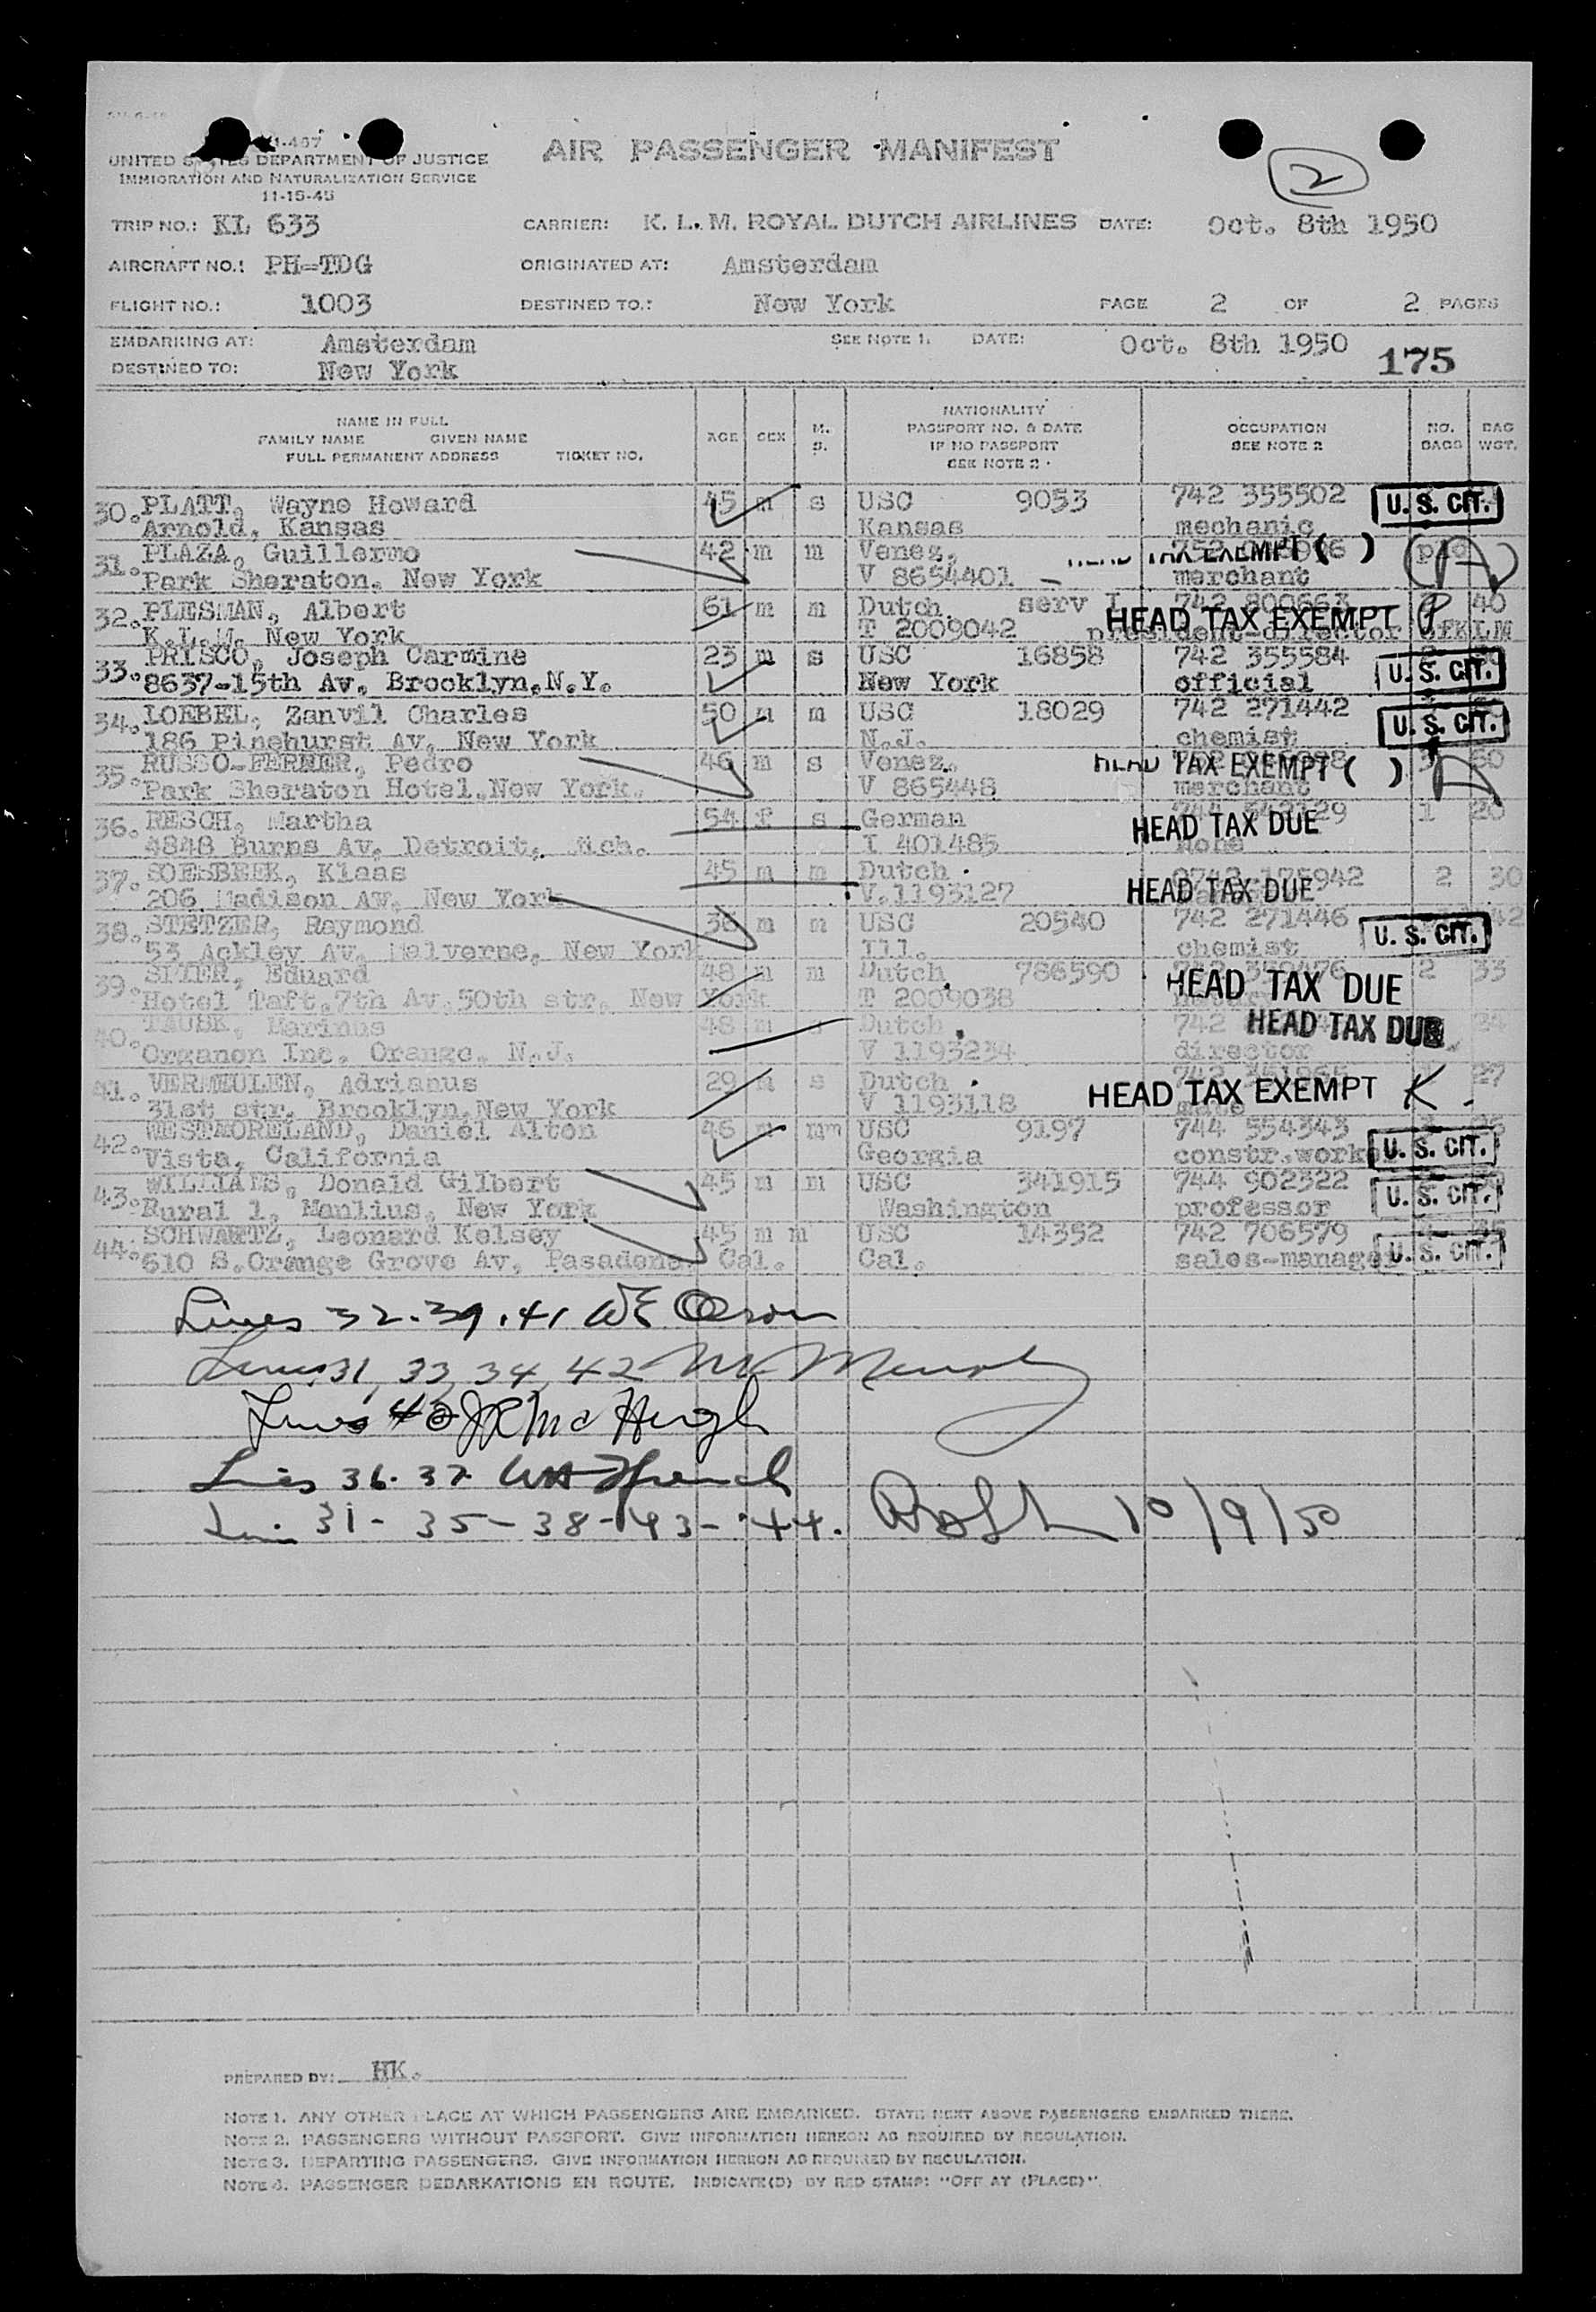 1-467
UNITED STATES DEPARTMENT OF JUSTICE
IMMIGRATION AND NATURALIZATION SERVICE
11-15-45
AIR PASSENGER MANIFEST
2
TRIP NO.: KL 633 CARRIER: K. L. M. ROYAL DUTCH AIRLINES DATE: Oct. 8th 1950
AIRCRAFT NO.: PH-TDG ORIGINATED AT: Amsterdam
FLIGHT NO.: 1003 DESTINED TO.: New York PAGE 2 OF 2 PAGES
EMBARKING AT: Amsterdam SEE NOTE 1. DATE: Oct. 8th 1950 175
DESTINED TO: New York
NAME IN FULL
FAMILY NAME GIVEN NAME
FULL PERMANENT ADDRESS TICKET NO.
AGE SEX M. S.
NATIONALITY
PASSPORT NO. & DATE
IF NO PASSPORT
SEE NOTE 2
OCCUPATION
SEE NOTE 2
NO. BAGS BAG WGT.
30. PLATT, Wayne Howard 45 m s USC 9053 742 355502 U. S. CIT.
Arnold, Kansas Kansas mechanic
31. PLAZA, Guillermo 42 m m Venez. HEAD TAX EXEMPT ( ) (A)
Park Sheraton, New York V 8654401 merchant
32. PLESMAN, Albert 61 m m Dutch serv I 742 800663 40
K.L.M. New York T 2009042 president-director HEAD TAX EXEMPT
33. PRISCO, Joseph Carmine 23 m s USC 16858 742 355584
8637-15th Av, Brooklyn,N.Y. New York official U. S. CIT.
34. LOEBEL, Zanvil Charles 50 m m USC 18029 742 271442
186 Pinehurst Av, New York N.J. chemist U. S. CIT.
35. RUSSO-FERNER, Pedro 46 m s Venez. HEAD TAX EXEMPT ( ) A
Park Sheraton Hotel,New York. V 865448 merchant
36. RESCH, Martha 54 f s German 1 20
4848 Burns Av, Detroit, Mch. I 401485 none HEAD TAX DUE
37. SOESBEEK, Klaas 45 m m Dutch 2 30
206 Madison Av, New York V.1193127 HEAD TAX DUE
38. STETZER, Raymond 36 m m USC 20540 742 271446 42
53 Ackley Av, Malverne, New York Ill. chemist U. S. CIT.
39. SPIER, Eduard 48 m m Dutch 786590 2 33
Hotel Taft,7th Av,50th str, New York T 2009038 HEAD TAX DUE
40. TAUSK, Marinus 48 m Dutch 742 HEAD TAX DUE 34
Organon Inc. Orange, N.J. V 1193234 director
41. VERMEULEN, Adrianus 29 m s Dutch 27
31st str. Brooklyn,New York V 1193118 HEAD TAX EXEMPT K.
42. WESTMORELAND, Daniel Alton 46 m m USC 9197 744 554343
Vista, California Georgia constr.worker U. S. CIT.
43. WILLIAMS, Donald Gilbert 45 m m USC 341915 744 902322
Rural 1, Manlius, New York Washington professor U. S. CIT.
44. SCHWARTZ, Leonard Kelsey 45 m m USC 14352 742 706579 35
610 S.Orange Grove Av, Pasadena, Cal. Cal. sales-manager U. S. CIT.
Lines 32.39.41 WE
Lines 31, 33, 34, 42 M
Lines 40 JR McHugh
Lines 36. 37. French
Lin 31 - 35 - 38 - 43 - 44. 10/9/50
PREPARED BY: HK.
NOTE 1. ANY OTHER PLACE AT WHICH PASSENGERS ARE EMBARKED. STATE NEXT ABOVE PASSENGERS EMBARKED THERE.
NOTE 2. PASSENGERS WITHOUT PASSPORT. GIVE INFORMATION HEREON AS REQUIRED BY REGULATION.
NOTE 3. DEPARTING PASSENGERS. GIVE INFORMATION HEREON AS REQUIRED BY REGULATION.
NOTE 4. PASSENGER DEBARKATIONS EN ROUTE. INDICATE(D) BY RED STAMP: "OFF AT (PLACE)".